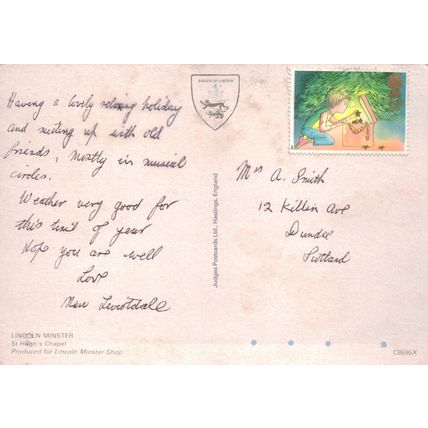 Having a lovely relaxing holiday
and meeting up with old
friends, mostly in musical
circles.
Weather very good for
this time of year
Hope you are well
Love
Mrs A. Smith
12 Killin Ave
Dundee
Scotland
Judges Postcards Ltd., Hastings, England
LINCOLN MINSTER
St Hugh's Chapel
Produced for Lincoln Minster Shop
C8695X